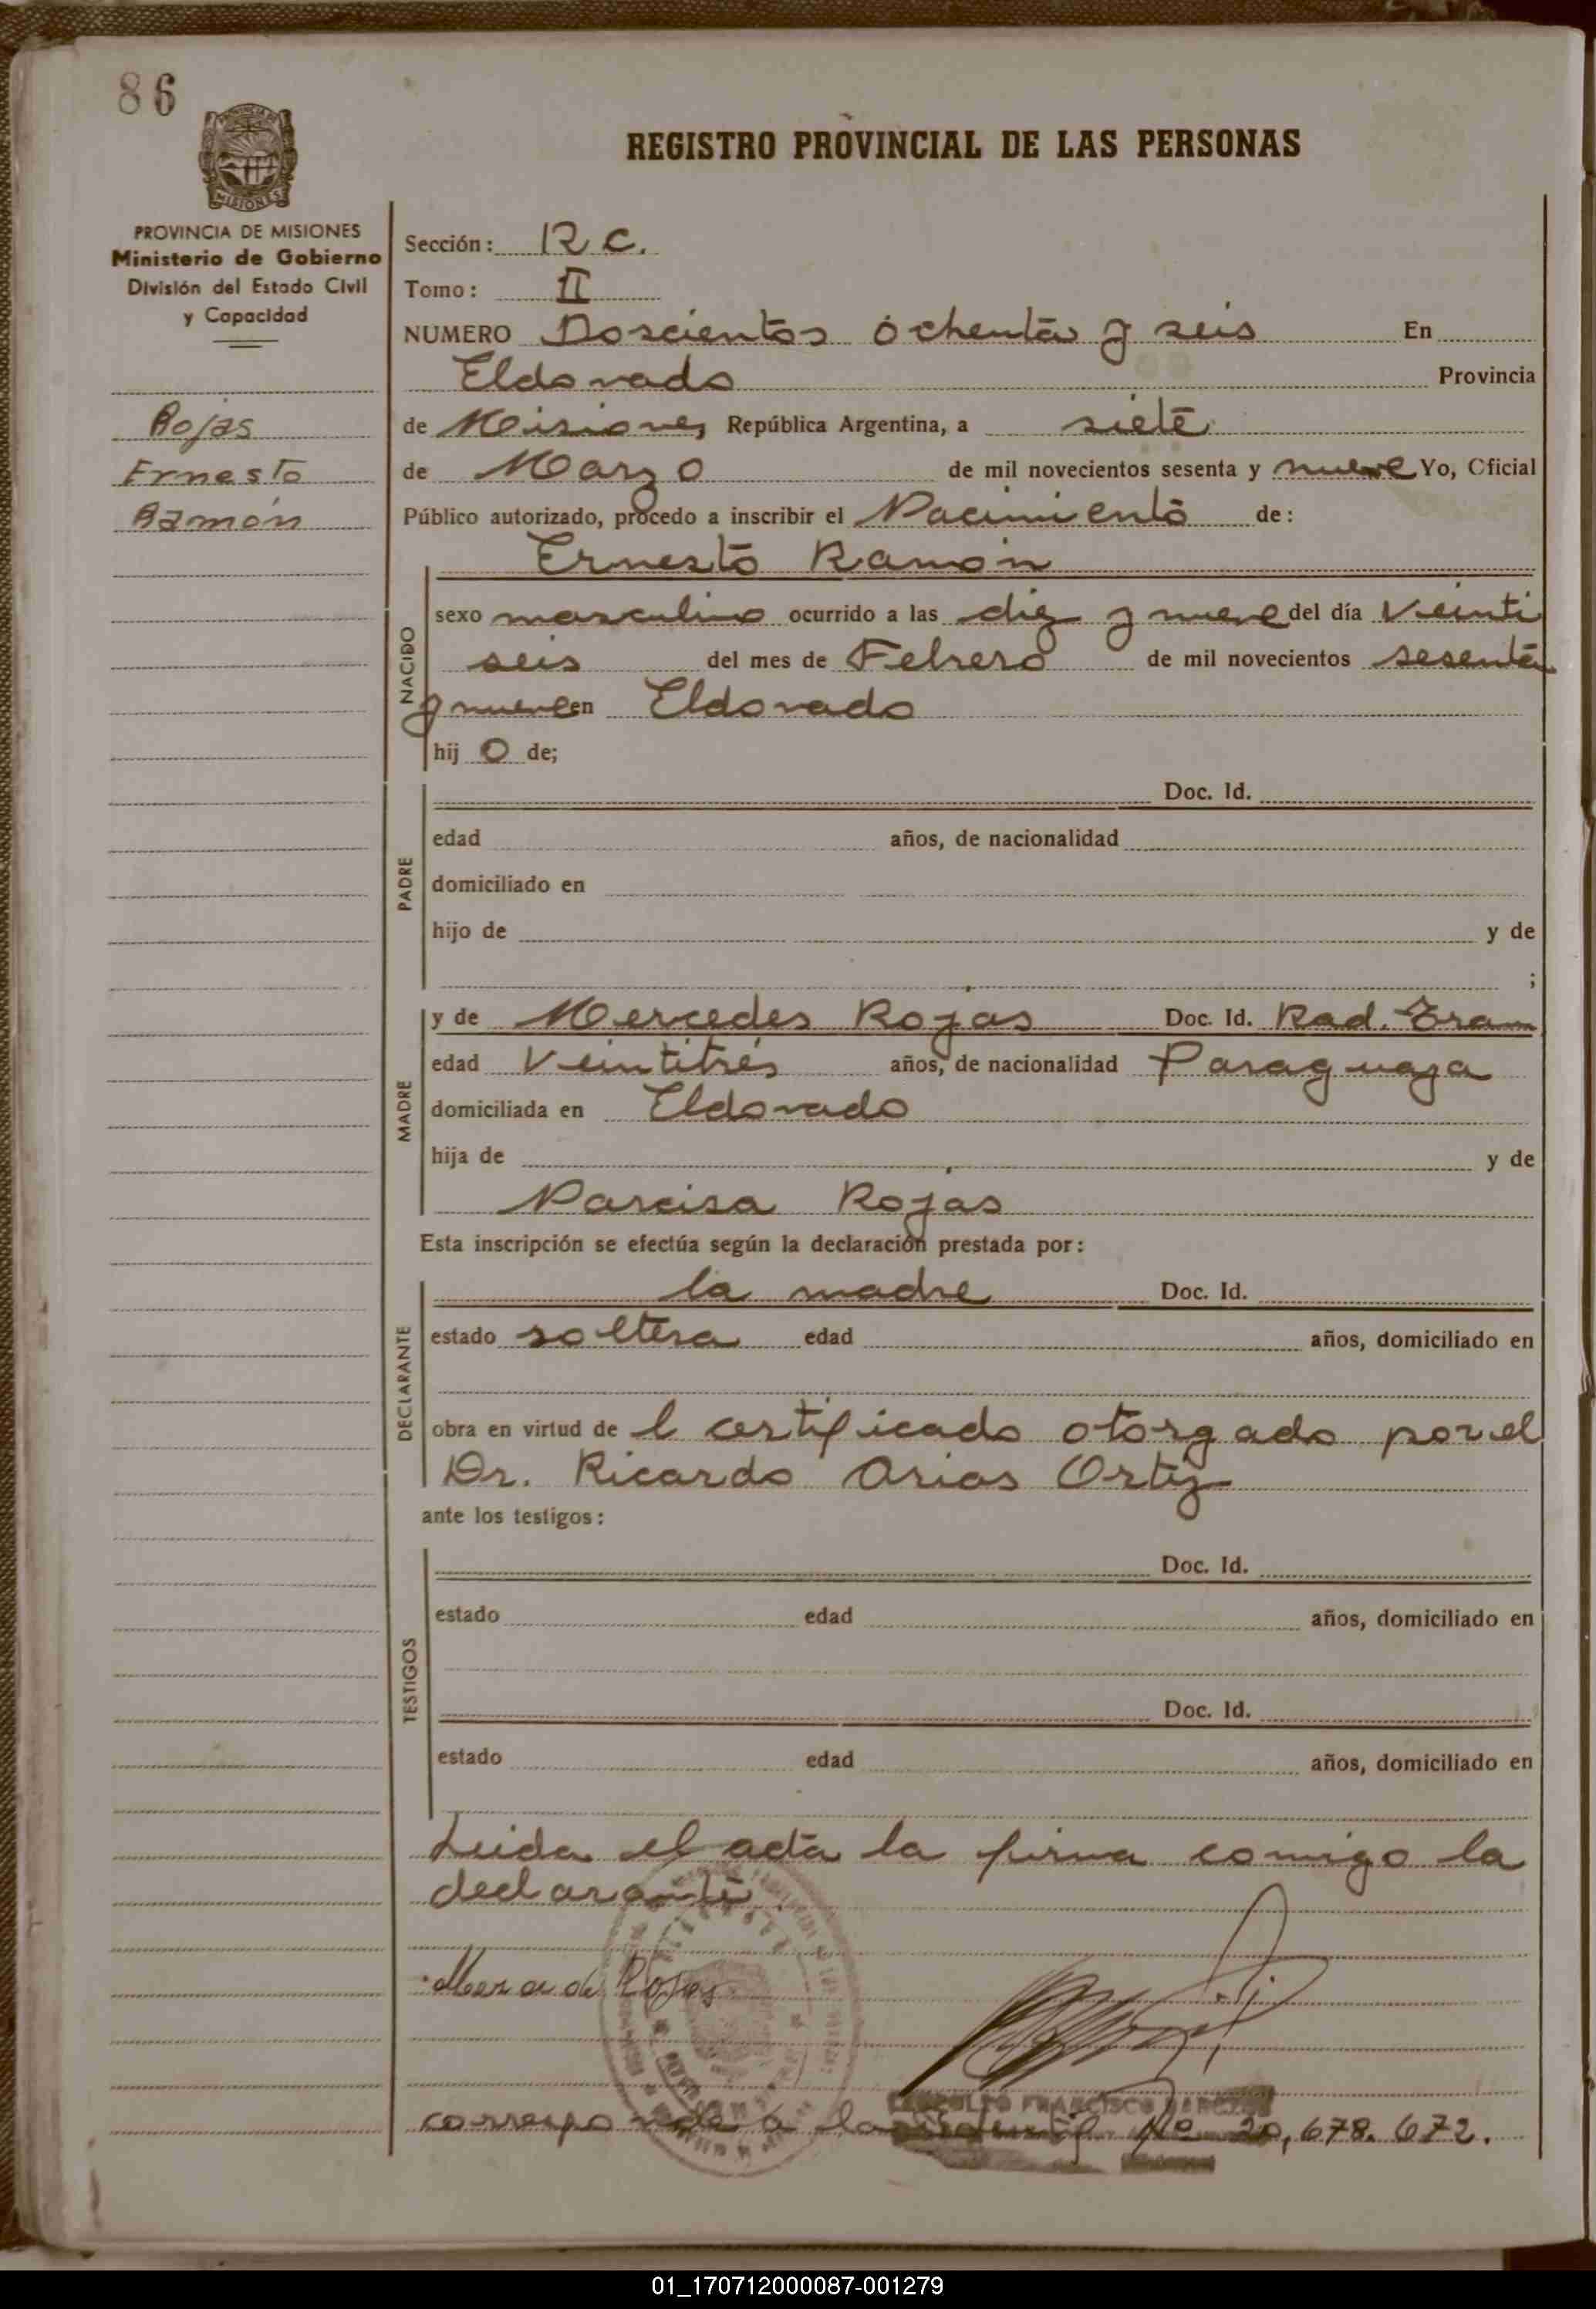 86
REGISTRO PROVINCIAL DE LAS PERSONAS
PROVINCIA DE MISIONES
Ministerio de Gobierno
División del Estado Civil
y Capacidad
Rojas
Ernesto
Ramón
Sección: R C.
Tomo: II
NUMERO Doscientos ochenta y seis En
Eldorado Provincia
de Misiones República Argentina, a siete
de Marzo de mil novecientos sesenta y nueve Yo, Oficial
Público autorizado, procedo a inscribir el Nacimiento de:
Ernesto Ramón
NACIDO
sexo masculino ocurrido a las diez y nueve del día Veinti
seis del mes de Febrero de mil novecientos sesenta
y nueve en Eldorado
hij o de;
PADRE
Doc. Id.
edad años, de nacionalidad
domiciliado en
hijo de y de
;
MADRE
y de Mercedes Rojas Doc. Id. Rad. Tram
edad Veintitrés años, de nacionalidad Paraguaya
domiciliada en Eldorado
hija de y de
Narcisa Rojas
Esta inscripción se efectúa según la declaración prestada por:
DECLARANTE
la madre Doc. Id.
estado soltera edad años, domiciliado en
obra en virtud de l certificado otorgado por el
Dr. Ricardo Arias Ortiz
ante los testigos:
TESTIGOS
Doc. Id.
estado edad años, domiciliado en
Doc. Id.
estado edad años, domiciliado en
Leida el acta la firma comigo la
declarante
Rojas
FRANCISCO
corresponde a la Nº 20,678.672.
01_170712000087-001279